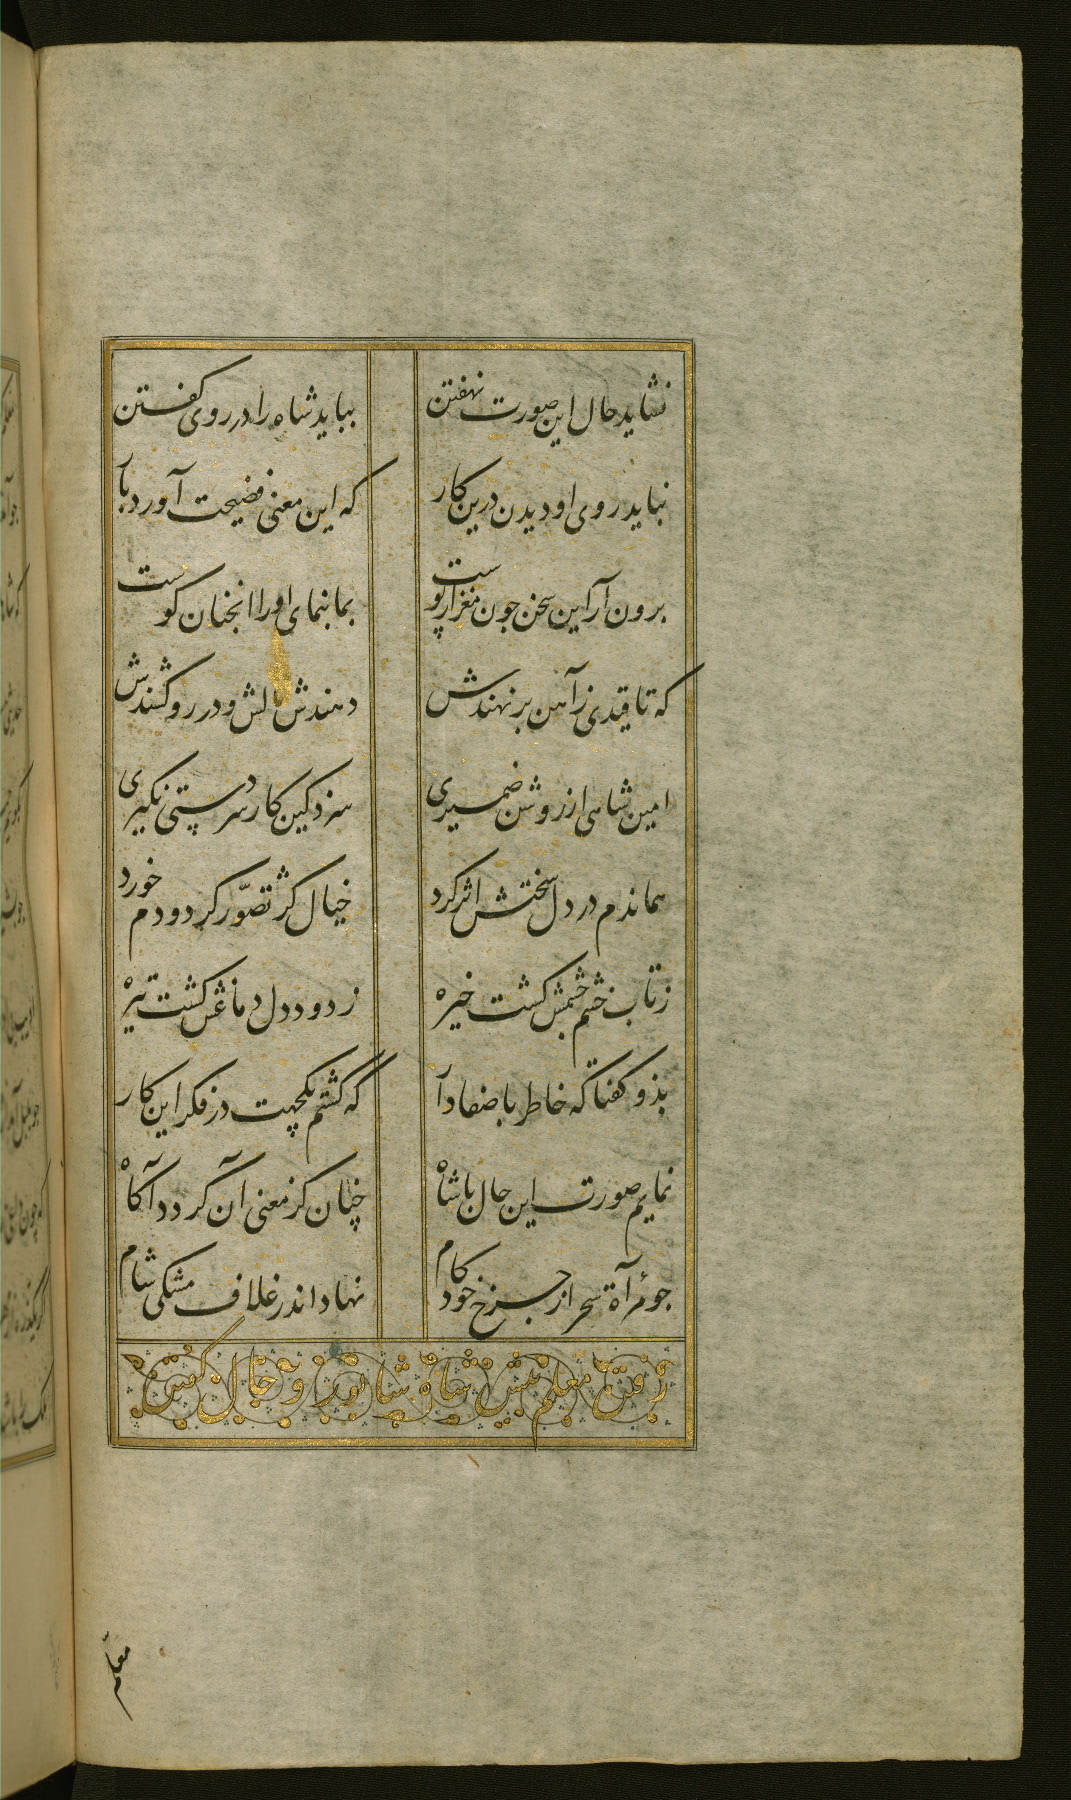 نشاید حال این صورت نهفتن
بباید شاه را در روی گفتن
نباید روی او دیدن درین کار
که این معنی فضیحت آورد بار
برون آر این سخن چون مغز از پوست
بما بنمای او را انچنان کوست
که تا قیدی ز آهن بر نهندش
دهندش مالش و در رو کشندش
امین شاهی از روشن ضمیری
سزد کین کار سردستی نگیری
هماندم در دل سختش اثر کرد
خیال کژ تصوّر کرد و دم خورد
ز تاب خشم چشمش کشت خیره
ز دود دل دماغش کشت تیره
بذو کفتا که خاطر با صفا دار
که کشتم یکجهت در فکر این کار
نمایم صورت این حال با شاه
چنان کز معنی آن گردد آگاه
جو مرآة سحر از جرخ خود کام
نهاد اندر غلاف مشکی شام
رفتن معلم پیش شاه شابور و حال کفتن
معلم